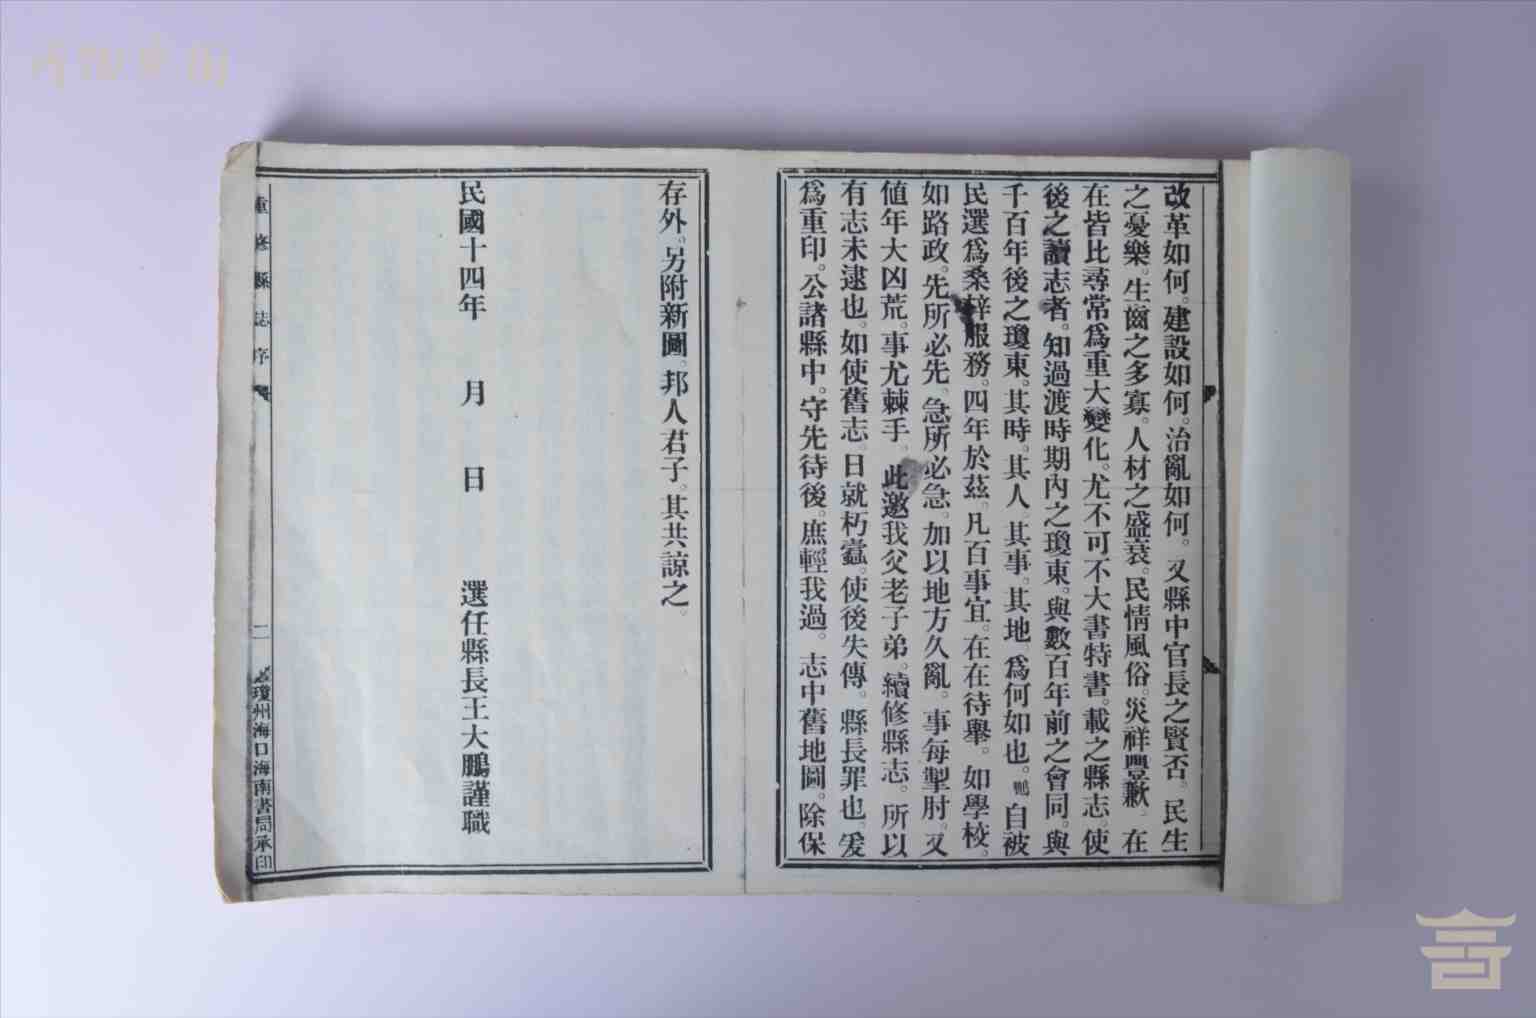 改革如何。建設如何。治亂如何。又縣中官長之賢否。民生
之憂樂。生齒之多寡。人材之盛衰。民情風俗。災祥豐歉。在
在皆比尋常爲重大變化。尤不可不大書特書。載之縣志。使
後之讀志者。知過渡時期內之瓊東。與數百年前之會同。與
千百年後之瓊東。其時。其人。其事。其地。爲何如也。鵬自被
民選爲桑梓服務。四年於茲。凡百事宜。在在待舉。如學校。
如路政。先所必先。急所必急。加以地方久亂。事每掣肘。又
値年大凶荒。事尤棘手。此邀我父老子弟。續修縣志。所以
有志未逮也。如使舊志。日就朽蠧。使後失傳。縣長罪也。爰
爲重印。公諸縣中。守先待後。庶輕我過。志中舊地圖。除保
存外。另附新圖。邦人君子。其共諒之。
民國十四年 月 日 選任縣長王大鵬謹職
重修縣誌序 二 瓊州海口海南書局承印